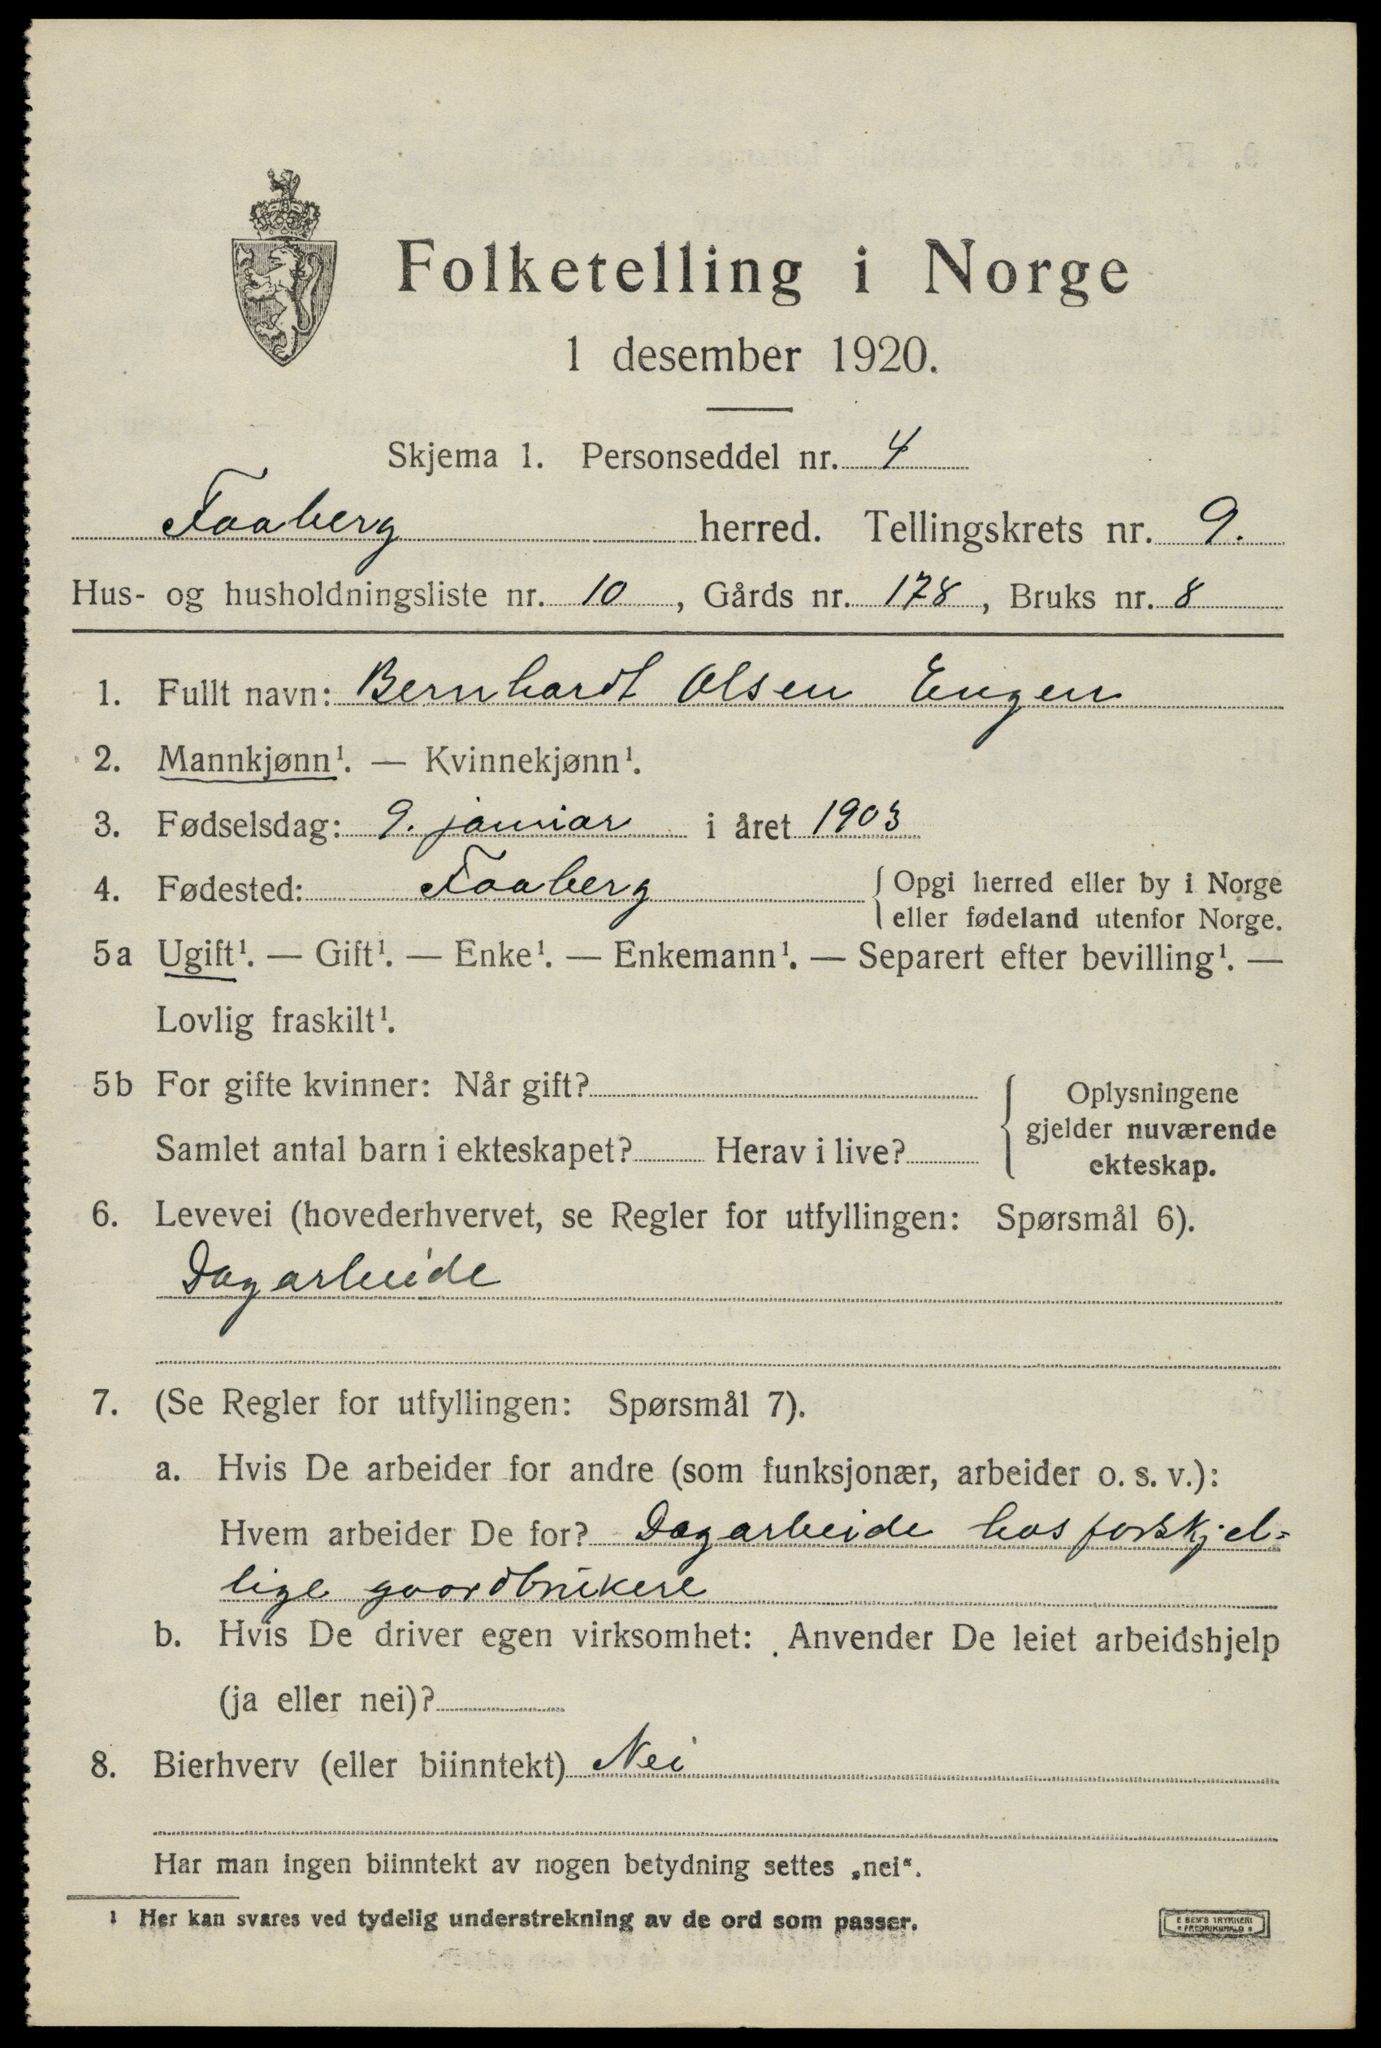 Folketelling i Norge
1 desember 1920.
Skjema 1. Personseddel nr. 4
Faaberg herred. Tellingskrets nr. 9.
Hus- og husholdningsliste nr. 10, Gårds nr. 178, Bruks nr. 8
1. Fullt navn: Bernhardt Olsen Engen
2. Mannkjønn¹. — Kvinnekjønn¹.
3. Fødselsdag: 9. januar i året 1903
4. Fødested: Faaberg { Opgi herred eller by i Norge
eller fødeland utenfor Norge.
5a Ugift¹. — Gift¹. — Enke¹. — Enkemann¹. — Separert efter bevilling¹. —
Lovlig fraskilt¹.
5b For gifte kvinner: Når gift?
Samlet antal barn i ekteskapet? Herav i live?
{ Oplysningene
gjelder nuværende
ekteskap.
6. Levevei (hovederhvervet, se Regler for utfyllingen: Spørsmål 6).
Dagarbeide
7. (Se Regler for utfyllingen: Spørsmål 7).
a. Hvis De arbeider for andre (som funksjonær, arbeider o. s. v.):
Hvem arbeider De for? Dagarbeide hos forskjel-
lige gaardbrukere
b. Hvis De driver egen virksomhet: Anvender De leiet arbeidshjelp
(ja eller nei)?
8. Bierhverv (eller biinntekt) Nei
Har man ingen biinntekt av nogen betydning settes „nei“.
¹ Her kan svares ved tydelig understrekning av de ord som passer.
E SEM'S TRYKKERI
FREDRIKSHALD